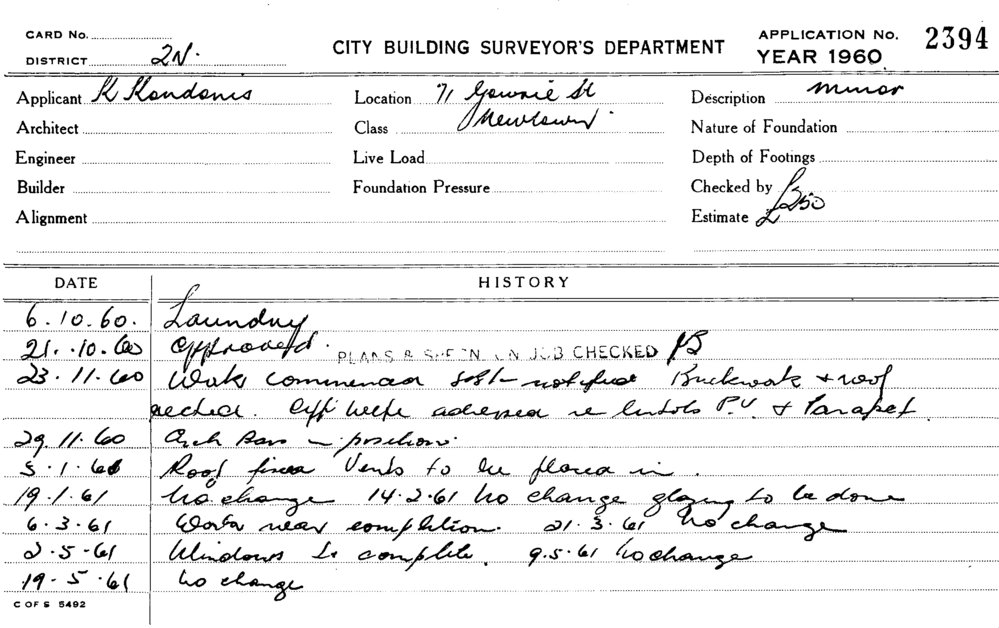 CARD No.
DISTRICT 2N.
CITY BUILDING SURVEYOR'S DEPARTMENT
APPLICATION No. 2394
YEAR 1960
Applicant K Kondonis
Location 71 Gowrie St
Description minor
Architect
Class Newtown.
Nature of Foundation
Engineer
Live Load
Depth of Footings
Builder
Foundation Pressure
Checked by
Alignment
Estimate £250
DATE HISTORY
6.10.60. Laundry
21.10.60 approved. PLANS & SPECN. ON JOB CHECKED
23.11.60 Works commenced notified Brickwork & roof
pecked. wife advised re lintols P.V. & Parapet
29.11.60 Arch Bars in position.
5.1.61 Roof fixed Vents to be placed in.
19.1.61 No change 14.2.61 No change glazing to be done
6.3.61 Works near completion. 21.3.61 No change
2.5.61 Windows to complete. 9.5.61 No change
19.5.61 No change
C OF S 5492